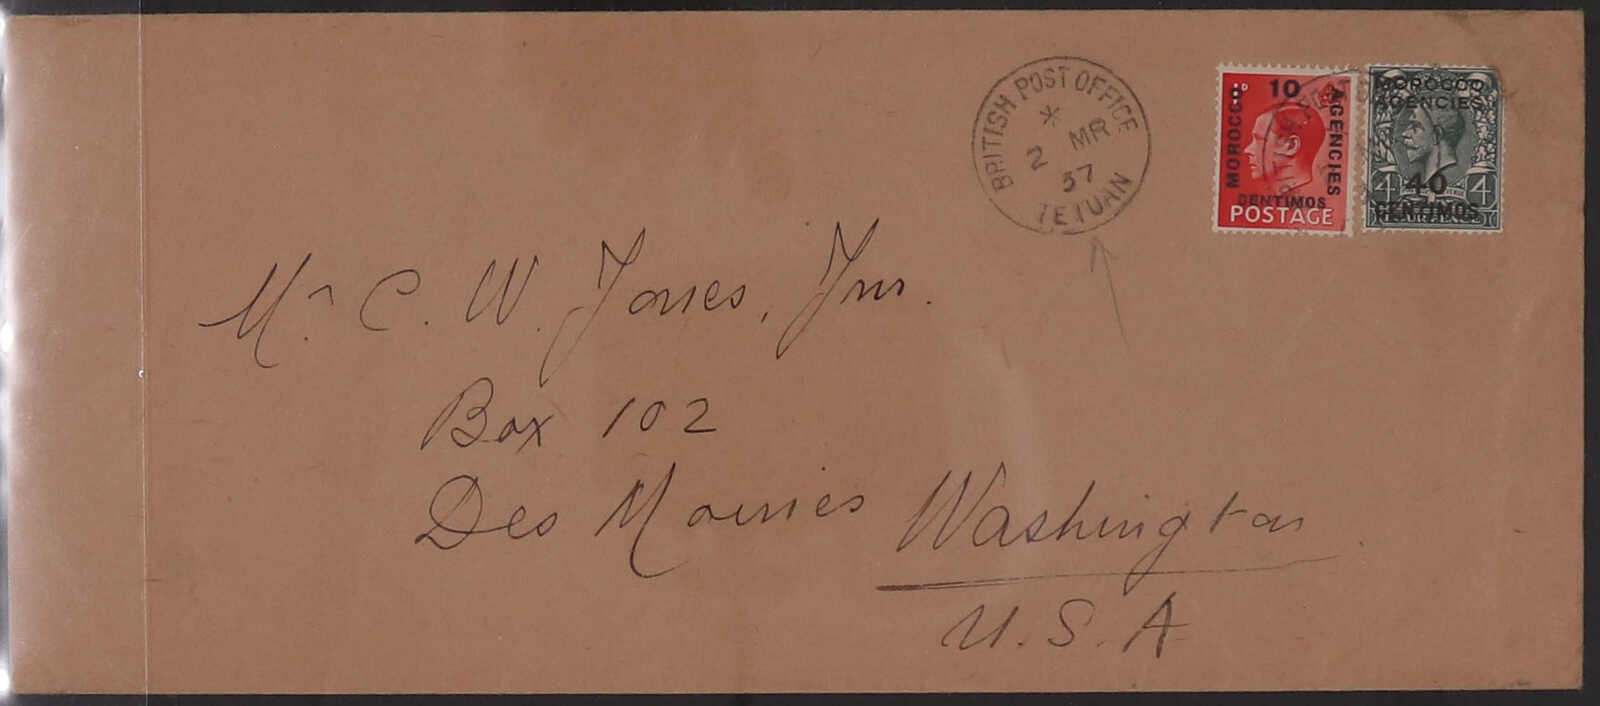 BRITISH POST OFFICE
2 MR
37
TETUAN
1D 10
MOROCCO AGENCIES
CENTIMOS
POSTAGE
MOROCCO
AGENCIES
4 40 4
CENTIMOS
Mr C. W. Jones, Jnr.
Box 102
Des Moines Washington
U.S.A